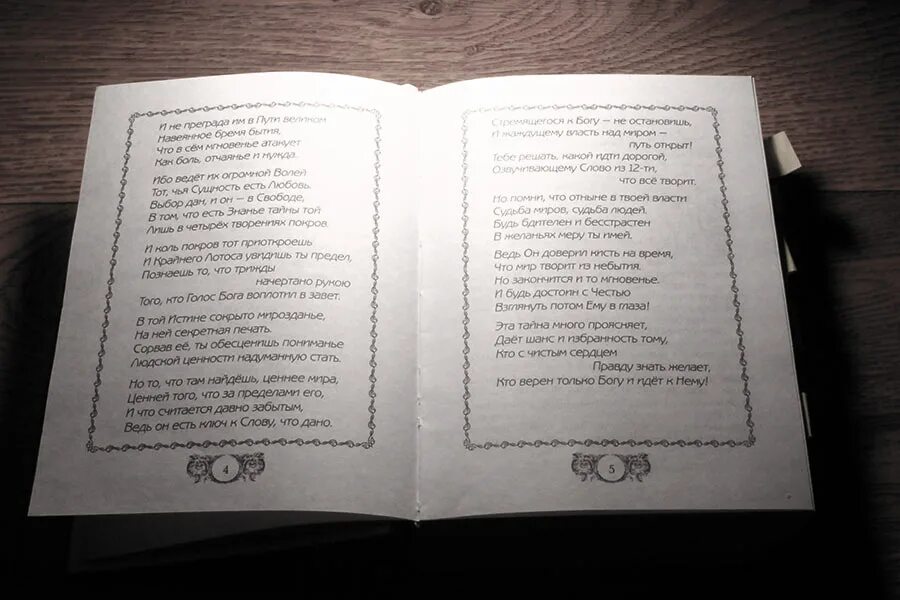 И не преграда им в Пути великом
Навеянное бремя бытия,
Что в сём мгновенье атакует
Как боль, отчаянье и нужда.
Ибо ведёт их огромной Волей
Тот, чья Сущность есть Любовь.
Выбор дан, и он — в Свободе,
В том, что есть Знанье тайны той
Лишь в четырёх творениях покров.
И коль покров тот приоткроешь
И Крайнего Лотоса увидишь ты предел,
Познаешь то, что трижды
начертано рукою
Того, кто Голос Бога воплотил в завет.
В той Истине сокрыто мирозданье,
На ней секретная печать.
Сорвав её, ты обесценишь пониманье
Людской ценности надуманную стать.
Но то, что там найдёшь, ценнее мира,
Ценней того, что за пределами его,
И что считается давно забытым,
Ведь он есть ключ к Слову, что дано.
4
Стремящегося к Богу — не остановишь,
И жаждущему власть над миром —
путь открыт!
Тебе решать, какой идти дорогой,
Озвучивающему Слово из 12-ти,
что всё творит.
Но помни, что отныне в твоей власти
Судьба миров, судьба людей.
Будь бдителен и бесстрастен
В желаньях меру ты имей.
Ведь Он доверил кисть на время,
Что мир творит из небытия.
Но закончится и то мгновенье.
И будь достоин с Честью
Взглянуть потом Ему в глаза!
Эта тайна много проясняет,
Даёт шанс и избранность тому,
Кто с чистым сердцем
Правду знать желает,
Кто верен только Богу и идёт к Нему!
5